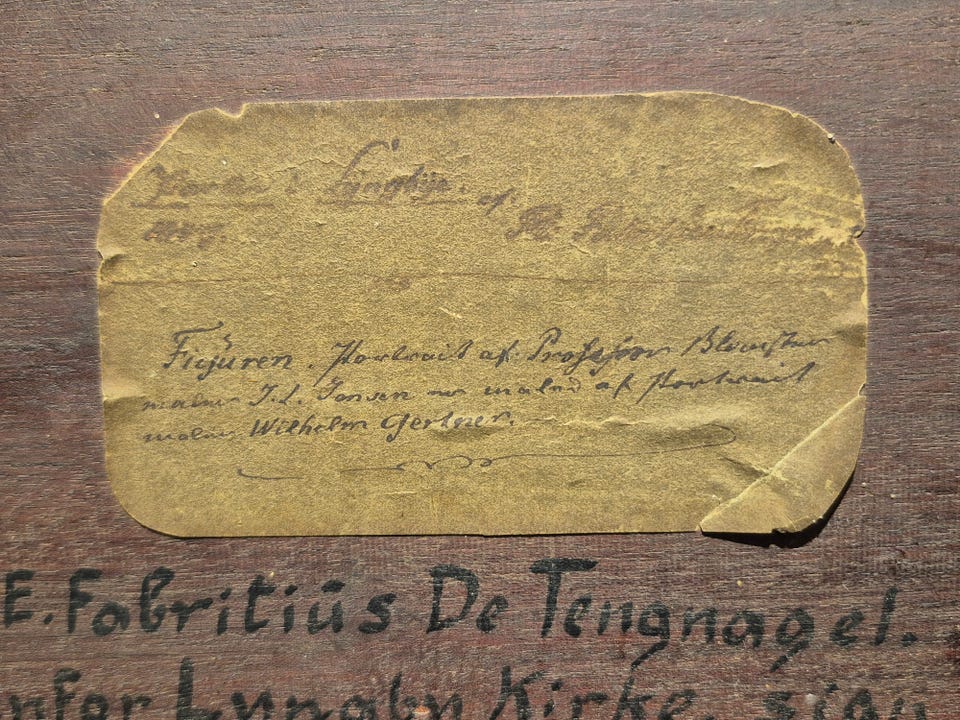 Lÿngbÿe. af
Figuren. Portrait af Professor Blomster
maler I. L. Jensen er malet af Portrait
maler Wilhelm Gertner.
E. Fabritiús De Tengnagel.
Lyngby Kirke. sign